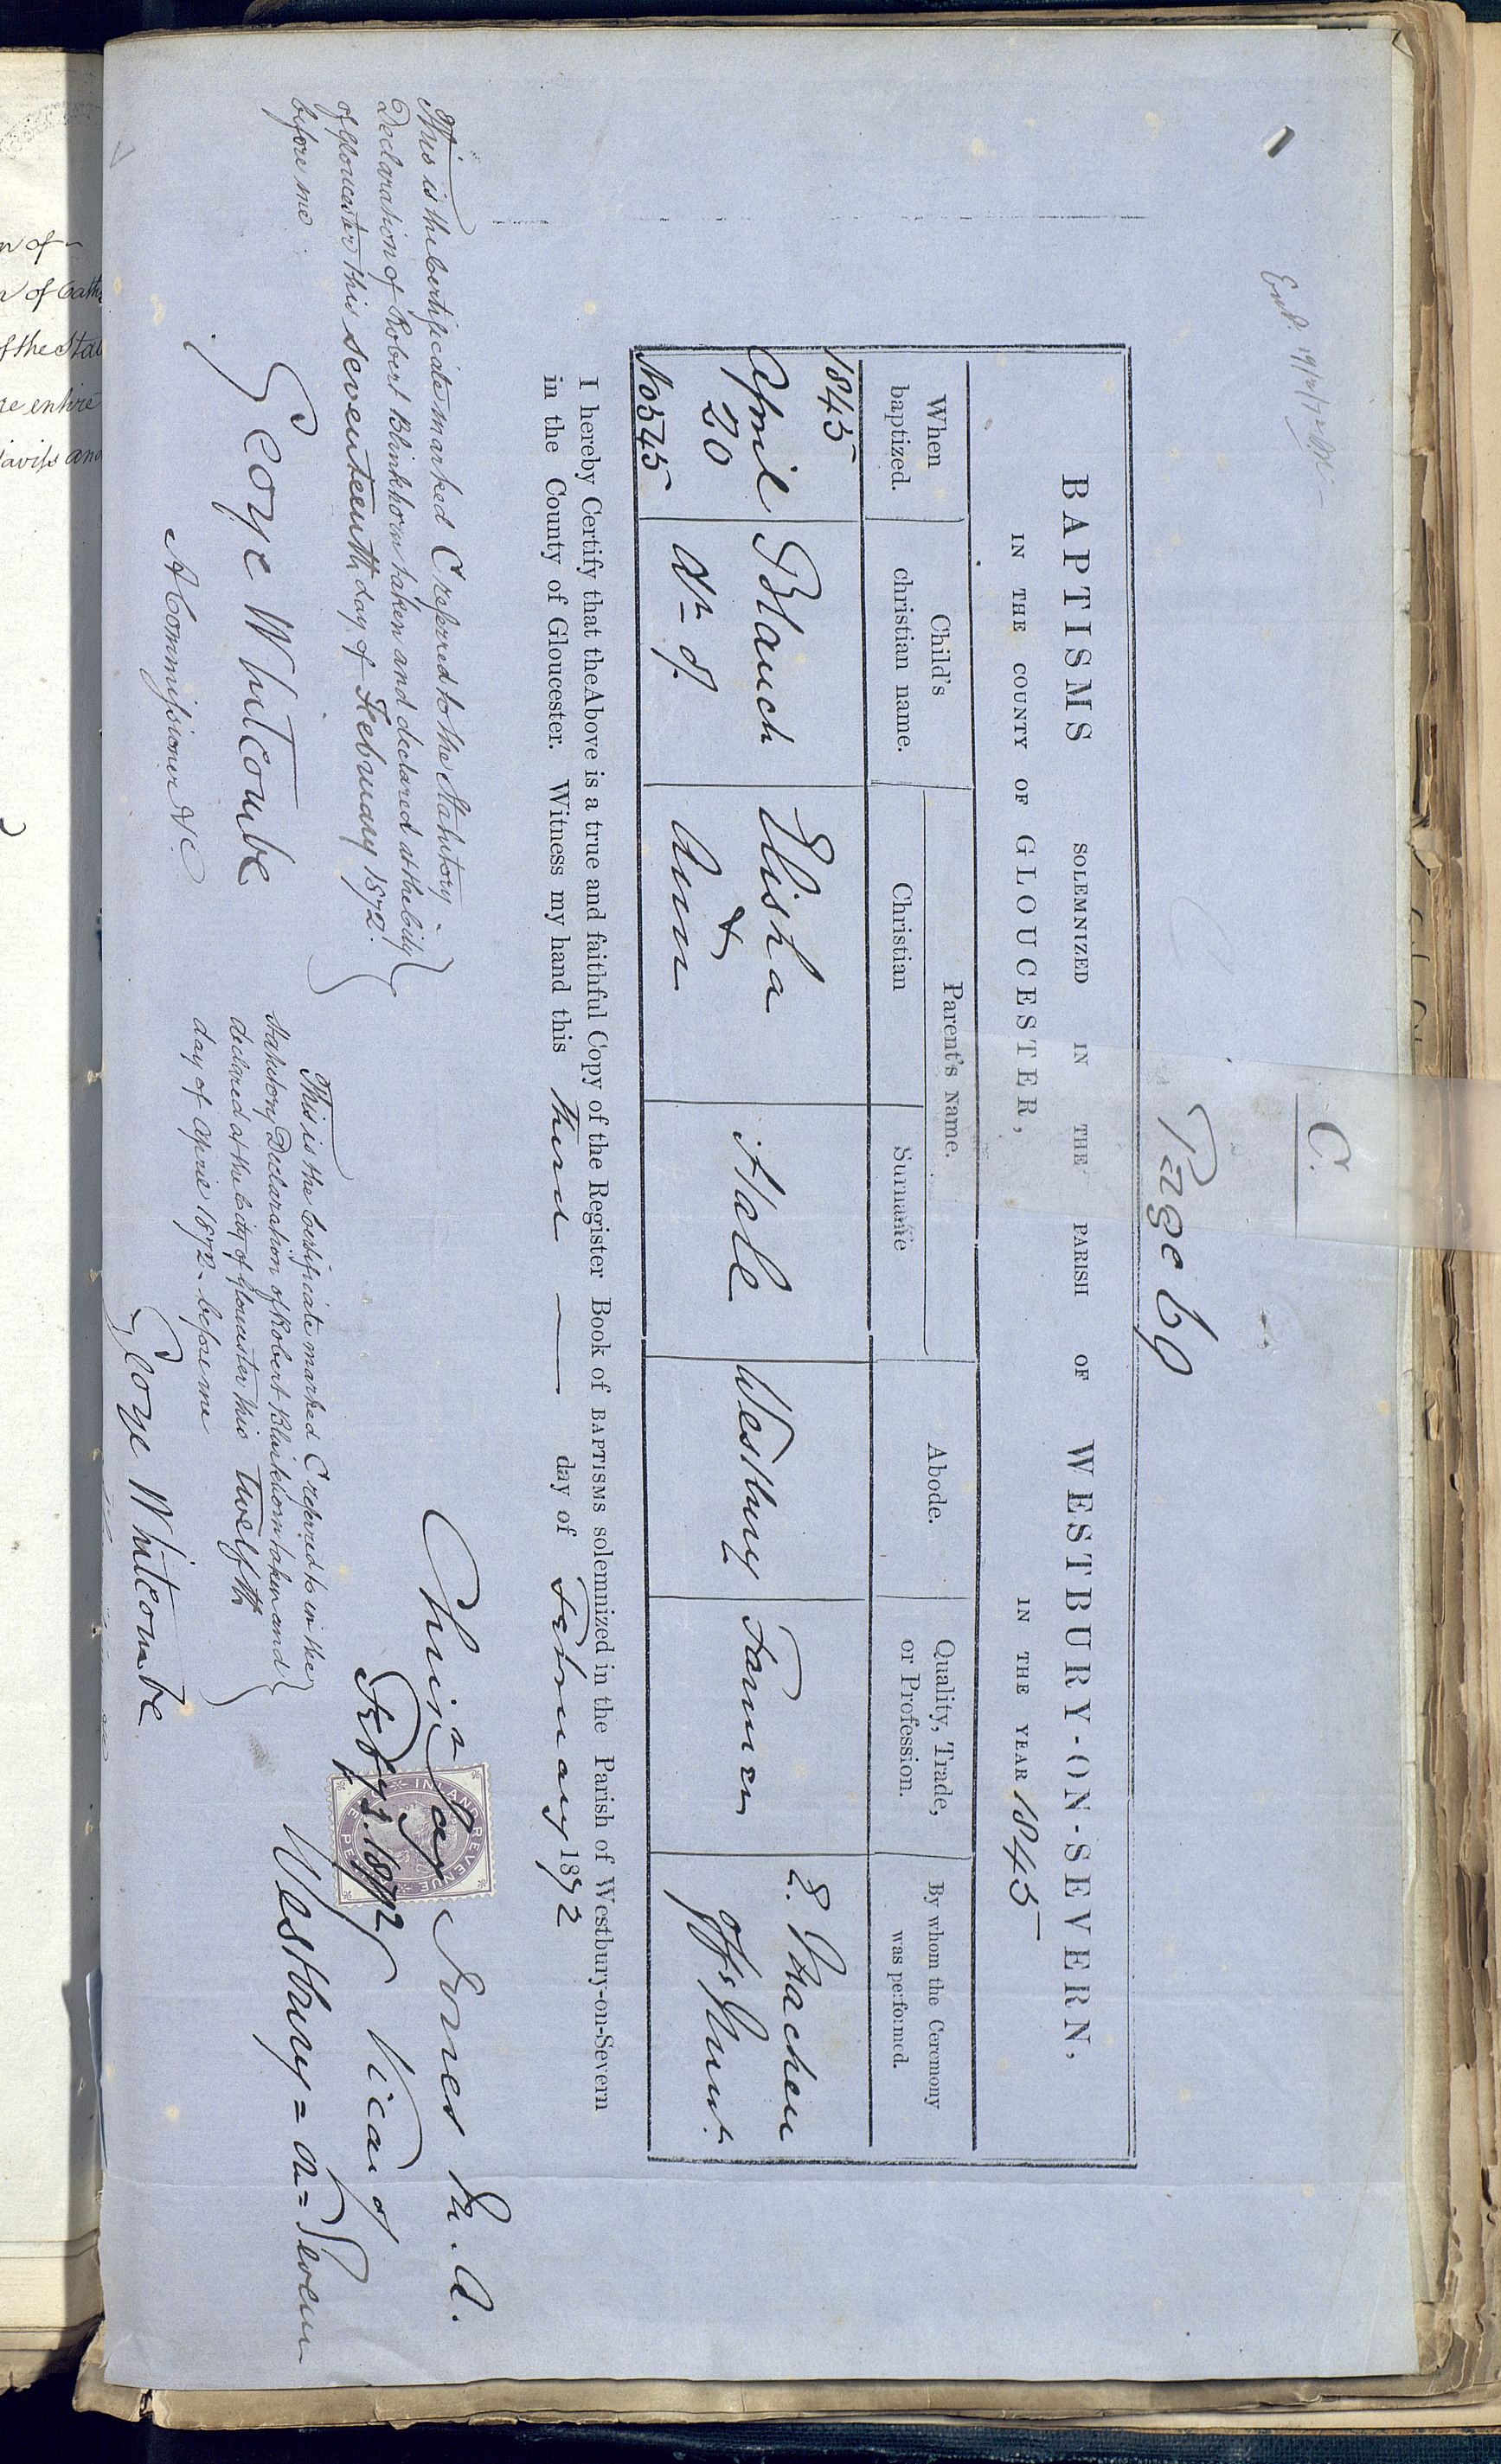 C.
Page 69
BAPTISMS SOLEMNIZED IN THE PARISH OF WESTBURY-ON-SEVERN,
IN THE COUNTY OF GLOUCESTER, IN THE YEAR 1845
When baptized.
Child's christian name.
Parent's Name.
Christian
Surname
Abode.
Quality, Trade, or Profession.
By whom the Ceremony was performed.
1845
April
20
No 545
Blanch
Dr. of
Elisha
&
Ann
Hale
Westbury
Farmer
off. Minr.
I hereby Certify that the Above is a true and faithful Copy of the Register Book of BAPTISMS solemnized in the Parish of Westbury-on-Severn
in the County of Gloucester. Witness my hand this third day of February 1872
Jones M.A.
Vicar of
Westbury=on=Severn
INLAND REVENUE
Feby 3. 1872
This is the Certificate marked C referred to in the Statutory
Declaration of Robert Blinkhorn taken and declared at the City
of Gloucester this seventeenth day of February 1872.
before me
George Whitcombe
A Commissioner &c
This is the Certificate marked C referred to in the
Statutory Declaration of Robert Blinkhorn taken and
declared at the City of Gloucester this Twelfth
day of April 1872. before me
George Whitcombe
n of
of the
re entire